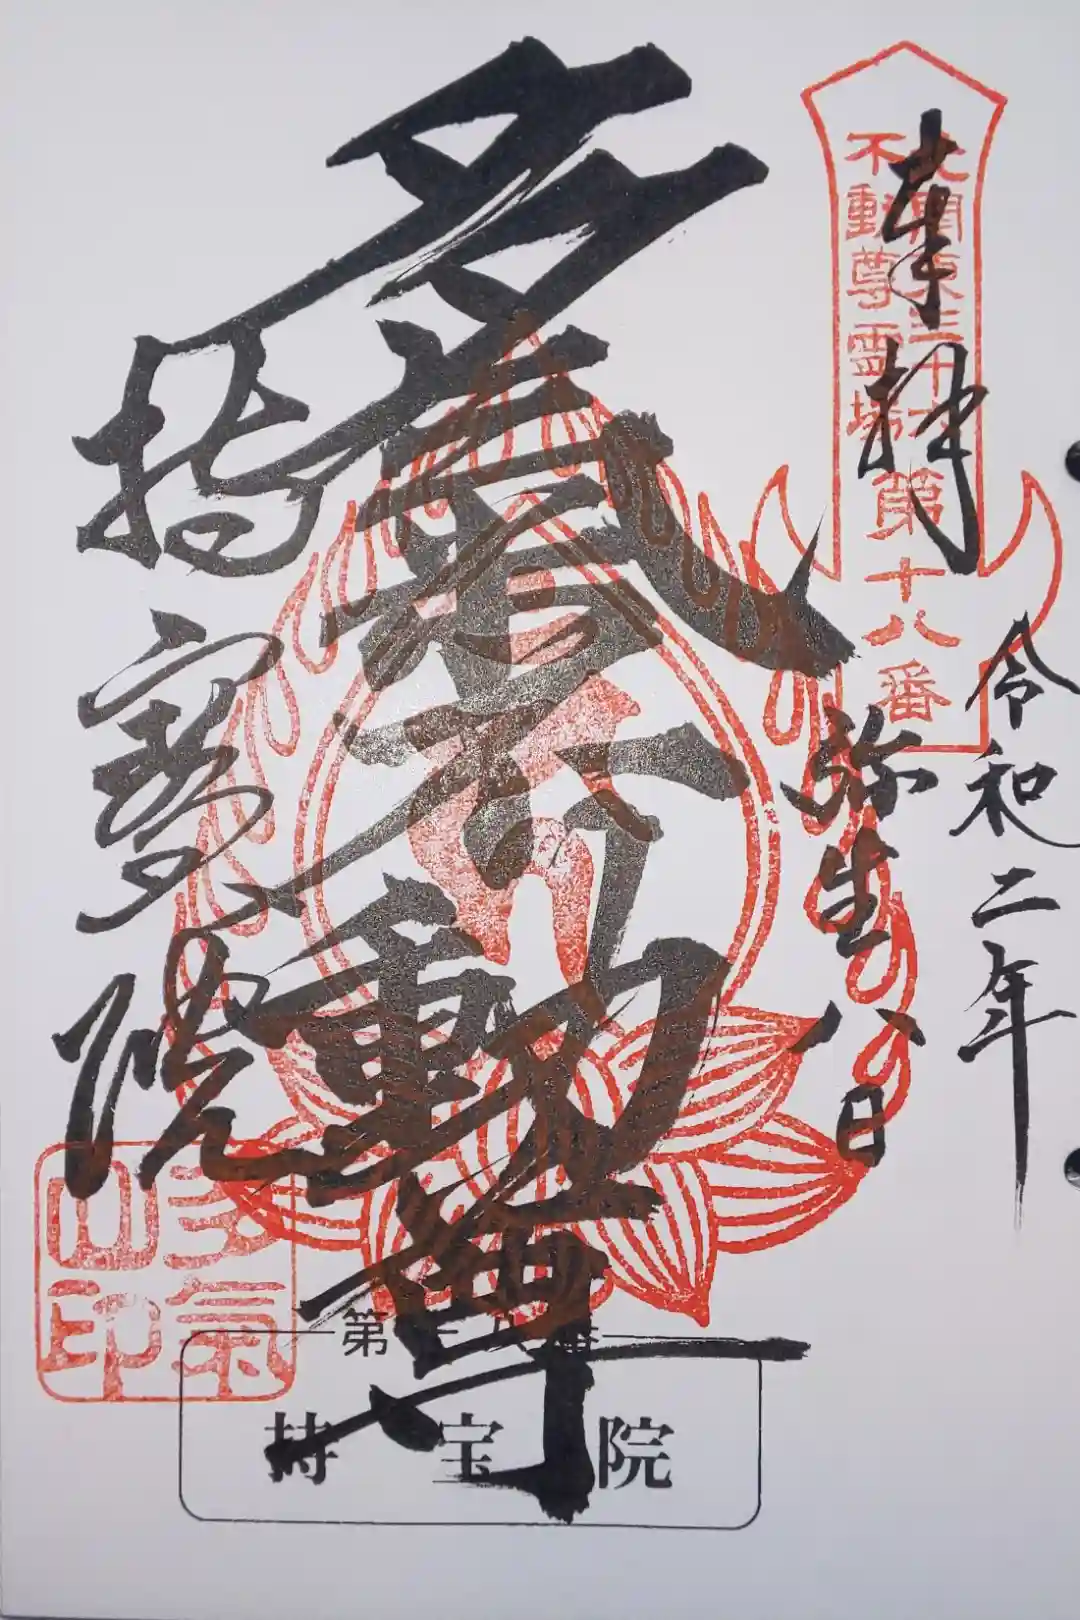 奉拝
北関東三十六
不動尊霊場
第十八番
令和二年
弥生八日
多氣不動尊
持寳院
多氣山印
第十八番
持宝院